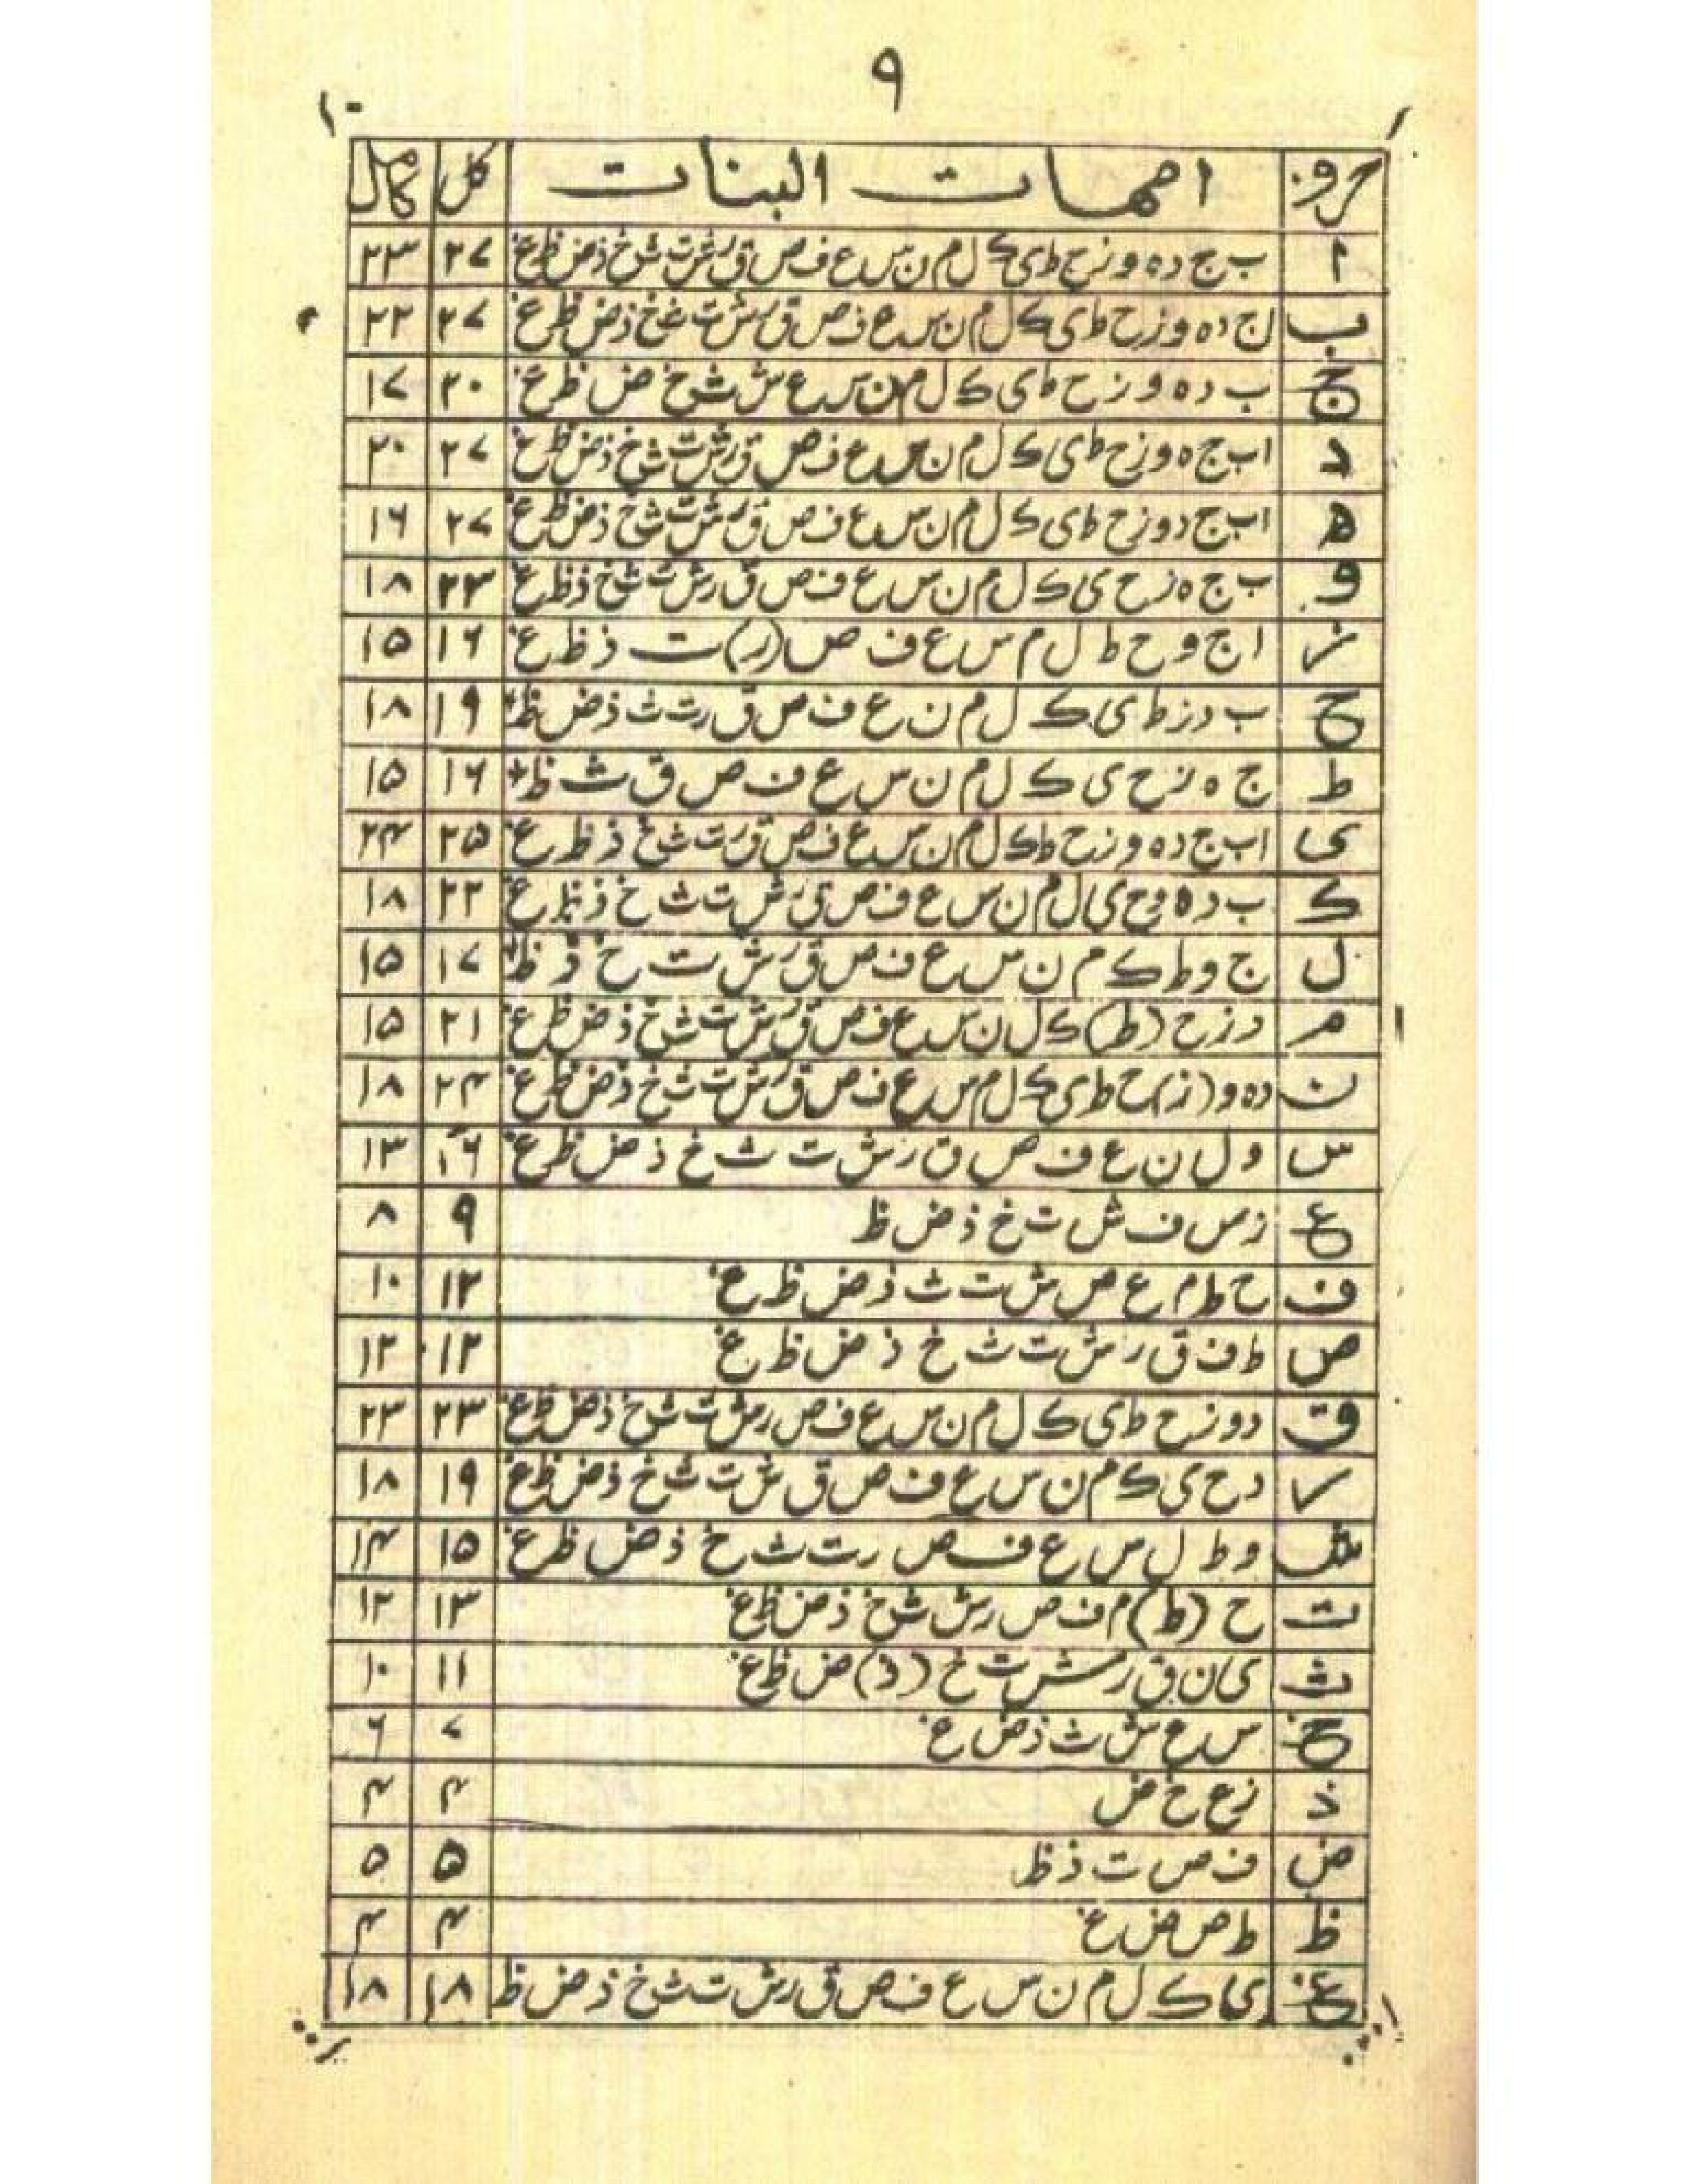 ۹
حروف امہات البنات کل کامل
ا ب ج د ہ و ز ح ط ی ک ل م ن س ع ف ص ق ر ش ت ث خ ذ ض ظ غ ۲۷ ۲۳
ب ا ج د ہ و ز ح ط ی ک ل م ن س ع ف ص ق ر ش ت ث خ ذ ض ظ غ ۲۷ ۲۲
ج ب د ہ و ز ح ط ی ک ل م ن س ع ش ث خ ض ظ غ ۲۰ ۱۷
د ا ب ج ہ و ز ح ط ی ک ل م ن س ع ف ص ق ر ش ت ث خ ذ ض ظ غ ۲۷ ۲۰
ہ ا ب ج د و ز ح ط ی ک ل م ن س ع ف ص ق ر ش ت ث خ ذ ض ظ غ ۲۷ ۱۶
و ب ج ہ ز ح ی ک ل م ن س ع ف ص ق ر ش ت ث خ ذ ظ غ ۲۳ ۱۸
ز ا ج و ح ط ل م س ع ف ص (ر) ت ذ ظ غ ۱۶ ۱۵
ح ب د ز ط ی ک ل م ن ع ف ص ق ر ت ث ذ ض ظ ۱۹ ۱۸
ط ج ہ ز ح ی ک ل م ن س ع ف ص ق ث ظ + ۱۶ ۱۵
ی ا ب ج د ہ و ز ح ط ک ل م ن س ع ف ص ق ر ت ث خ ذ ظ غ ۲۵ ۲۴
ک ب د ہ و ح ی ل م ن س ع ف ص ق ر ش ت ث خ ذ ظ غ ۲۲ ۱۸
ل ج و ط ک م ن س ع ف ص ق ر ش ت خ ذ ظ ۱۷ ۱۵
م د ز ح (ط) ک ل ن س ع ف ص ق ر ش ت ث خ ذ ض ظ غ ۲۱ ۱۵
ن د ہ و (ز) ح ط ی ک ل م س ع ف ص ق ر ش ت ث خ ذ ض ظ غ ۲۴ ۱۸
س و ل ن ع ف ص ق ر ش ت ث خ ذ ض ظ غ ۱۶ ۱۳
ع ز س ف ش ت خ ذ ض ظ ۹ ۸
ف ح ط م ع ص ش ت ث ذ ض ظ غ ۱۲ ۱۰
ص ط ف ق ر ش ت ث خ ذ ض ظ غ ۱۲ ۱۲
ق د و ز ح ط ی ک ل م ن س ع ف ص ر ش ت ث خ ذ ض ظ غ ۲۳ ۲۳
ر د ح ی ک م ن س ع ف ص ق ش ت ث خ ذ ض ظ غ ۱۹ ۱۸
ش و ط ل س ع ف ص ر ت ث خ ذ ض ظ غ ۱۵ ۱۴
ت ح (ط) م ف ص ر ش ث خ ذ ض ظ غ ۱۳ ۱۲
ث ی ن ق ر ش ت خ (ذ) ض ظ غ ۱۱ ۱۰
خ س ع ش ث ذ ض غ ۷ ۶
ذ ز ع خ ض ۴ ۴
ض ف ص ت ذ ظ ۵ ۵
ظ ط ص ض غ ۴ ۴
غ ی ک ل م ن س ع ف ص ق ر ش ت ث خ ذ ض ظ ۱۸ ۱۸